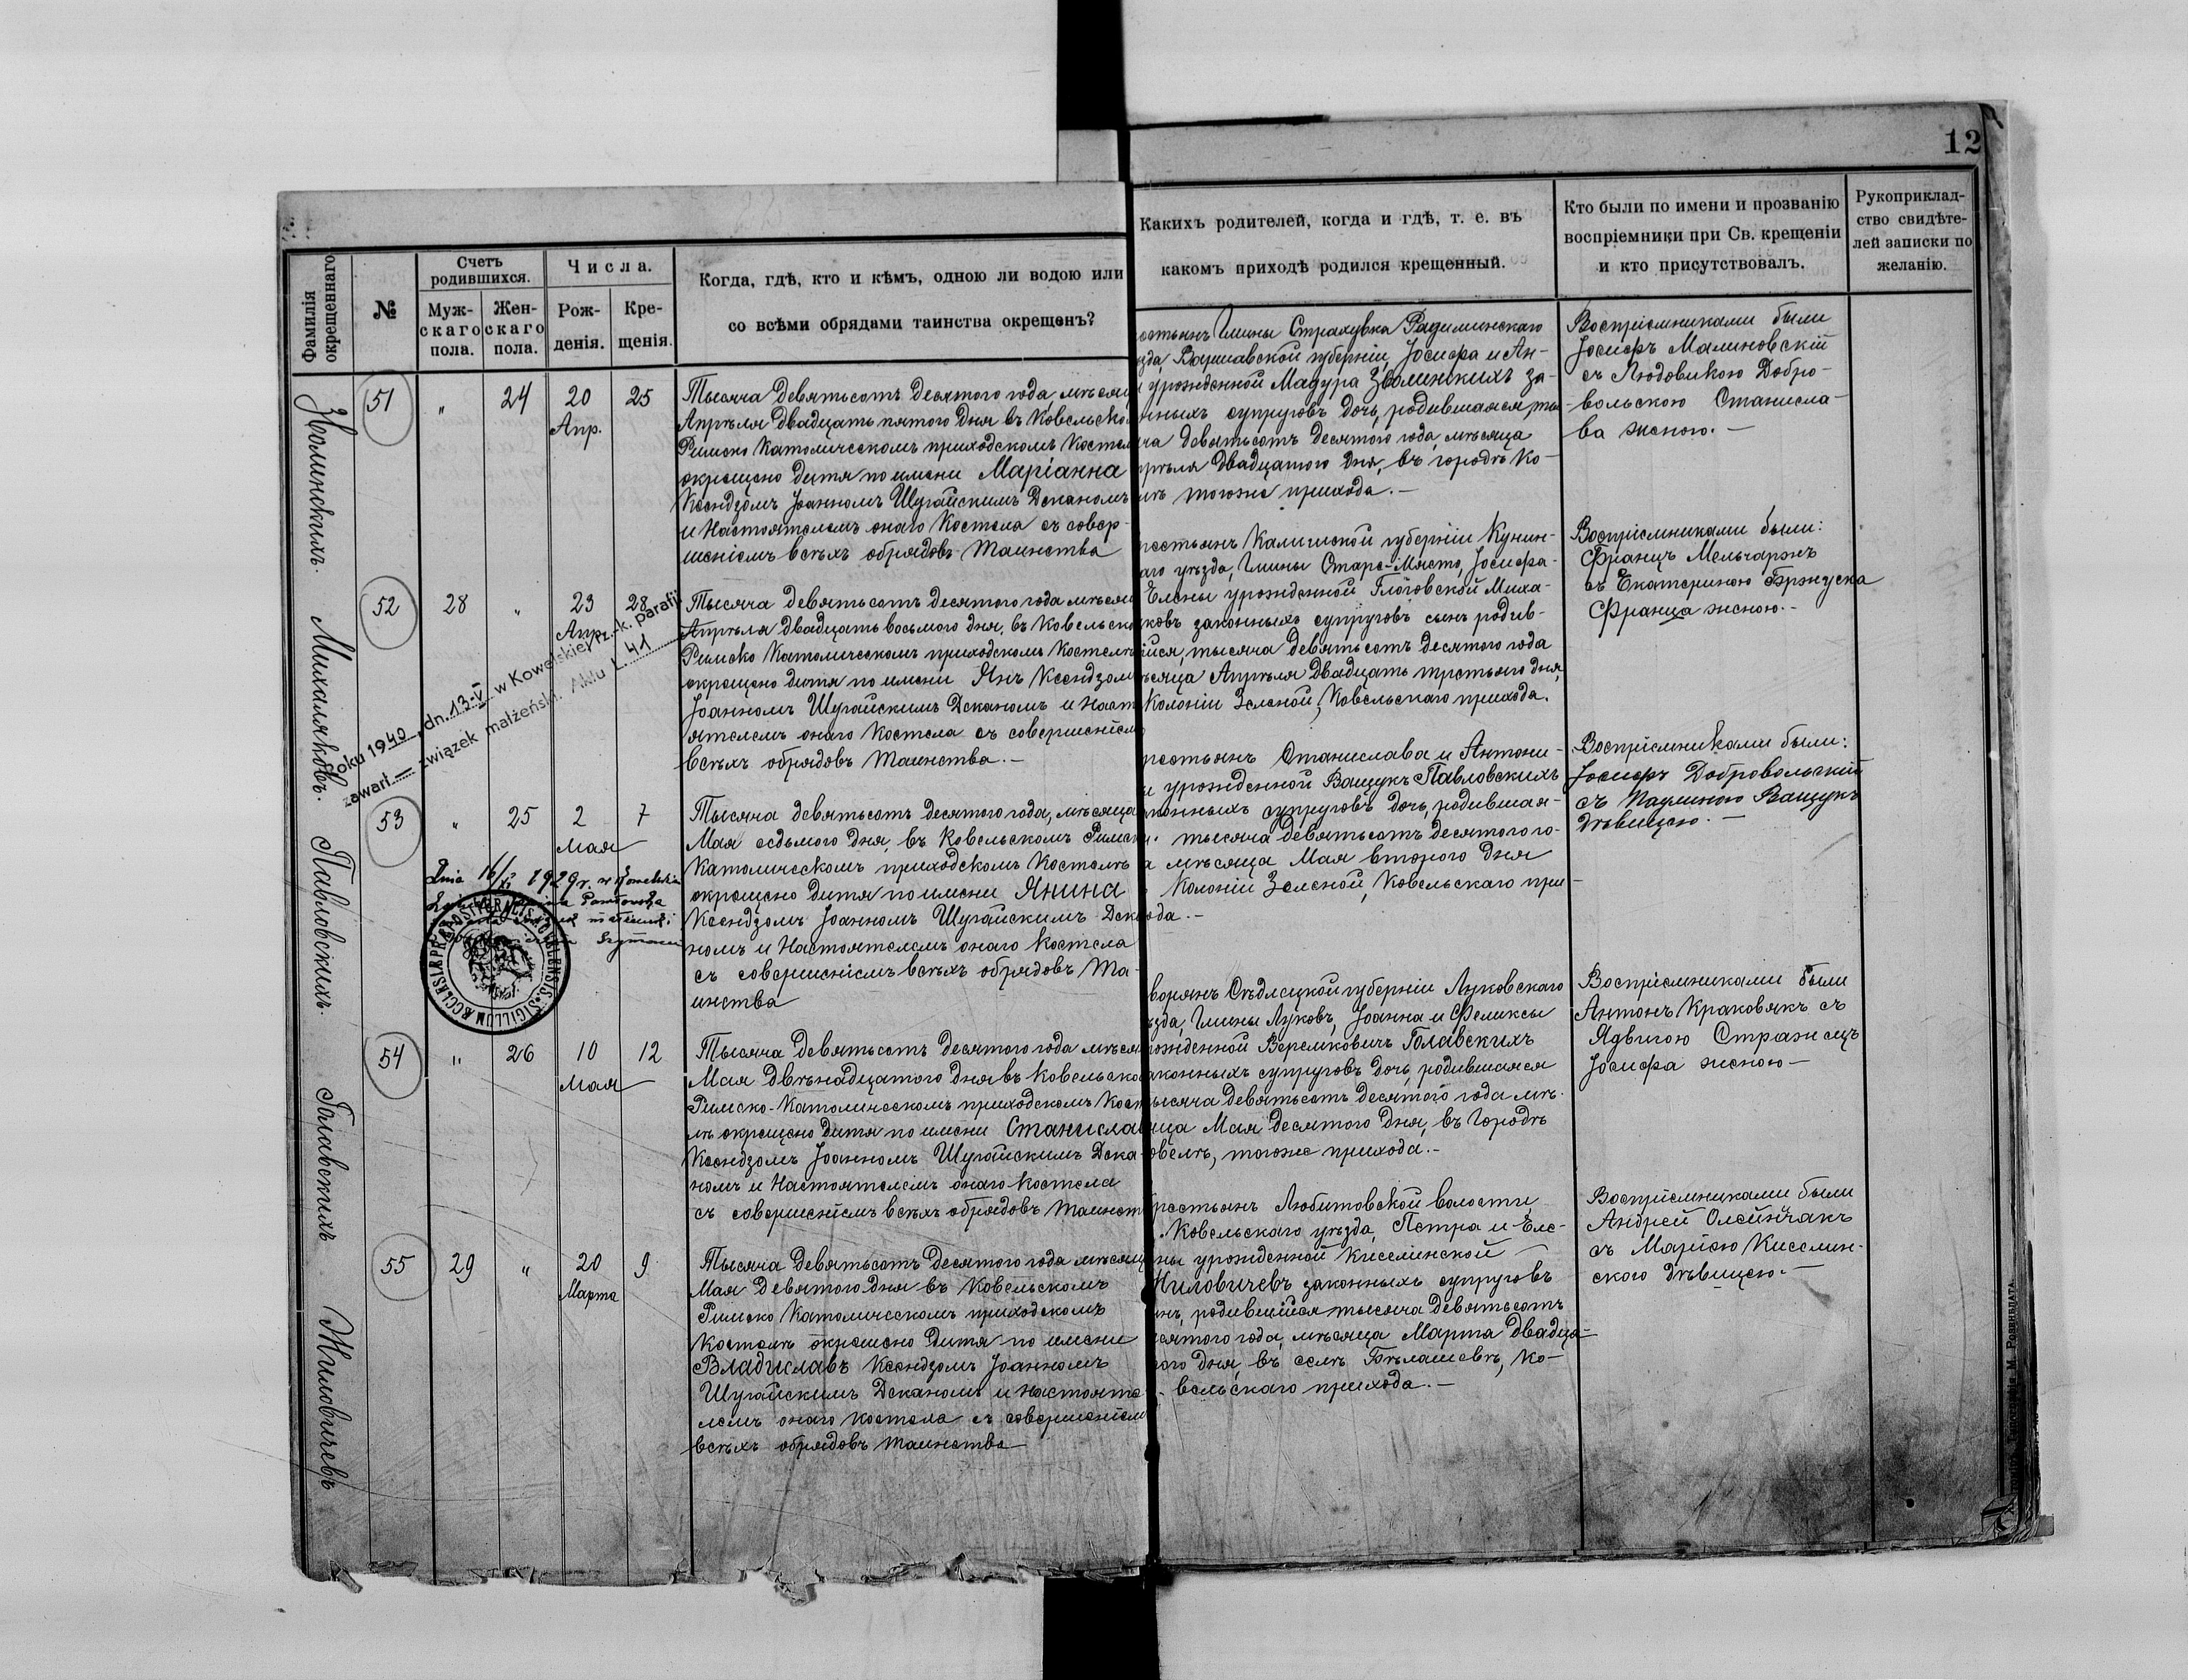 12
Фамилія окрещеннаго
№
Счетъ родившихся.
Муж-
скаго
пола.
Жен-
скаго
пола.
Числа.
Рож-
денія.
Кре-
щенія.
Когда, гдѣ, кто и кѣмъ, одною ли водою или
со всѣми обрядами таинства окрещенъ?
Какихъ родителей, когда и гдѣ, т. е. въ
какомъ приходѣ родился крещенный.
Кто были по имени и прозванію
воспріемники при Св. крещеніи
и кто присутствовалъ.
Рукоприклад-
ство свидѣте-
лей записки по
желанію.
51
"
24
20
Апр.
25
Тысяча девятьсотъ десятого года мѣсяц
Апрѣля двадцать пятого дня въ Ковельско
Римско Католическомъ приходскомъ Косте
окрещено дитя по имени Маріанна
Ксендзомъ Іоанномъ Шугайскимъ Деканомъ
и Настоятелемъ онаго Костела съ совер-
шеніемъ всѣхъ обрядовъ Таинства
остьянъ Гмины Страхувка Радиминскаго
зда, Варшавской губерніи, Іосифа и Ан-
урожденной Мадура Зволинскихъ за-
нныхъ супруговъ дочь, родившаяся ты-
ча девятьсотъ десятого года, мѣсяца
прѣля двадцатого дня, въ городѣ Ко-
лѣ тогоже прихода.-
Воспріемниками были
Іосифъ Малиновскій
съ Людовикою Добро-
вольскою Станисла-
ва женою.-
Михаляковъ.
52
28
"
23
Апр.
28
Тысяча девятьсотъ десятого года мѣсяц
Апрѣля двадцать восьмого дня, въ Ковельско
Римско Католическомъ приходскомъ Костелѣ
окрещено дитя по имени Янъ Ксендзом
Іоанномъ Шугайскимъ Деканомъ и Наст
ятелемъ онаго Костела съ совершеніем
всѣхъ обрядовъ Таинства.-
рестьянъ Калишской губерніи Кунин-
аго уѣзда, Гмины Старе-Място, Іосифа-
Елены урожденной Глоговской Миха-
ковъ законныхъ супруговъ сынъ родив-
ійся, тысяча девятьсотъ десятого года
ѣсяца Апрѣля двадцать третьяго дня,
Колоніи Зеленой, Ковельскаго прихода.
Воспріемниками были:
Францъ Мельчарэкъ
съ Екатериною Брэнуска
Франца женою.-
roku 1940 dn. 13-V w Kowelskiej rz.-k. parafji
zawarł — związek małżeński. Aktu L. 41
Павловскихъ.
53
"
25
2
Мая
7
Тысяча девятьсотъ десятого года, мѣсяца
Мая седьмого дня, въ Ковельскомъ Римск
Католическомъ приходскомъ Костелѣ
окрещено дитя по имени Янина
Ксендзомъ Іоанномъ Шугайскимъ Дека
номъ и Настоятелемъ онаго Костела
съ совершеніемъ всѣхъ обрядовъ Та-
инства
рестьянъ Станислава и Антони-
и урожденной Ващукъ Павловскихъ
конныхъ супруговъ дочь, родившая-
тысяча девятьсотъ десятого го-
а мѣсяца Мая второго дня
Колоніи Зеленой, Ковельскаго при-
ода.-
Воспріемниками были:
Іосифъ Добровольскій
съ Паулиною Ващукъ
дѣвицею.-
Dnia 16/XI 1929 r. w
SIGILLUM ECCLESIAE
Гылавскихъ
54
"
26
10
Мая
12
Тысяча девятьсотъ десятого года мѣсяц
Мая двѣнадцатого дня въ Ковельско
Римско-Католическомъ приходскомъ Кост
лѣ окрещено дитя по имени Станислав
Ксендзомъ Іоанномъ Шугайскимъ Дека-
номъ и Настоятелемъ онаго Костела
съ совершеніемъ всѣхъ обрядовъ Таинст
ворянъ Сѣдлецкой губерніи Луковскаго
ѣзда, Гмины Луковъ, Іоанна и Феликсы
рожденной Веремковичъ Голавскихъ
аконныхъ супруговъ дочь, родившаяся
ысяча девятьсотъ десятого года мѣ-
яца Мая десятого дня, въ Городѣ
овелѣ, тогоже прихода.-
Воспріемниками были
Антонъ Краковякъ съ
Ядвигою Стражецъ
Іосифа женою-
Жиловичевъ
55
29
"
20
Марта
9
Тысяча девятьсотъ десятого года мѣсяц
Мая девятого дня въ Ковельскомъ
Римско Католическомъ приходскомъ
Костелѣ окрещено дитя по имени
Владиславъ Ксендзомъ Іоанномъ
Шугайскимъ Деканомъ и Настояте
лемъ онаго Костела съ совершеніем
всѣхъ обрядовъ Таинства-
рестьянъ Любитовской волости,
Ковельскаго уѣзда, Петра и Еле-
ны урожденной Киселинской
Жиловичевъ законныхъ супруговъ
нъ, родившійся тысяча девятьсотъ
есятого года, мѣсяца Марта двадца-
ого дня, въ селѣ Бѣлашевѣ, Ко-
вельскаго прихода.-
Воспріемниками были
Андрей Олейничакъ
съ Маріею Киселин-
ского дѣвицею.-